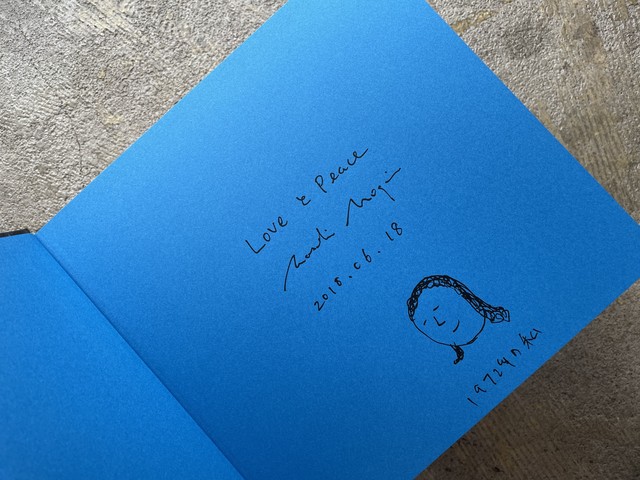 Love と Peace
2018.06.18
1972年の私